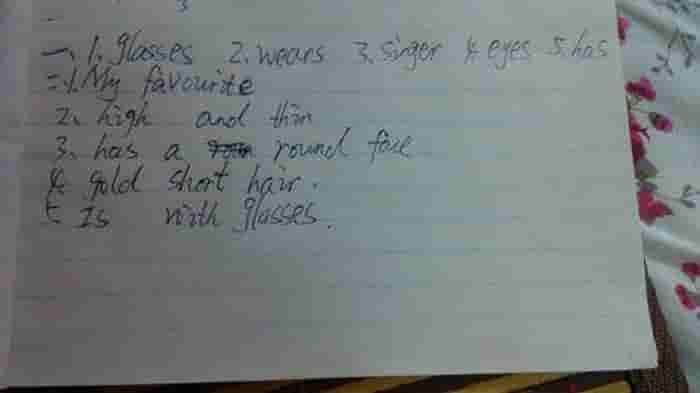 3
一、1. glasses 2. wears 3. singer 4. eyes 5. has
二1. My favourite
2、high and thin
3、has a round face
4. gold short hair.
5 Is with glasses.